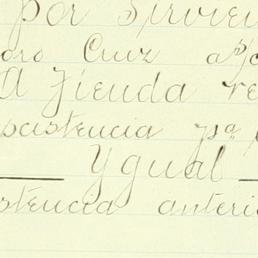 por Sirvien
oro Cruz a p/c
A Tienda re
xistencia pª
Ygual
stencia anterio